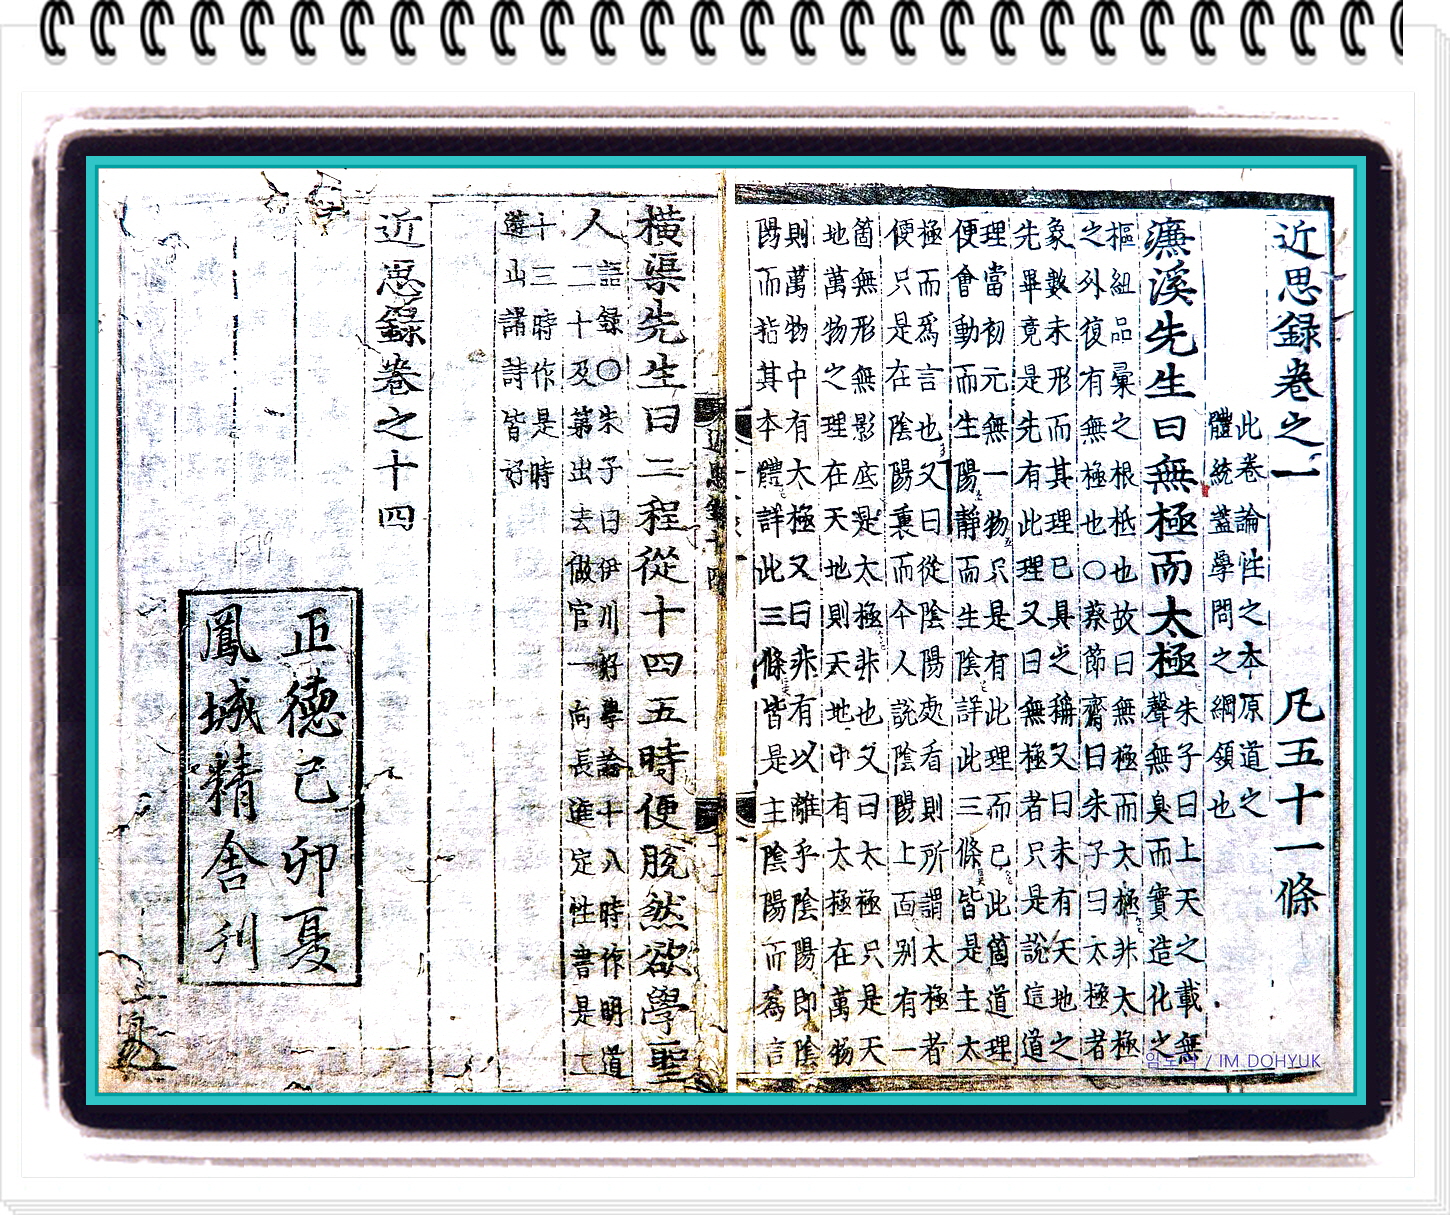 近思録卷之一 凡五十一條
此卷論性之本原道之
體統蓋學問之綱領也
濂溪先生曰無極而太極
朱子曰上天之載無
聲無臭而實造化之
樞紐品彙之根柢也故曰無極而太極非太極
之外復有無極也○蔡節齋曰朱子曰太極者
象數未形而其理已具之稱又曰未有天地之
先畢竟是先有此理又曰無極者只是說這道
理當初元無一物只是有此理而已此箇道理
便會動而生陽靜而生陰詳此三條皆是主太
極而爲言也又曰從陰陽處看則所謂太極者
便只是在陰陽裏而今人說陰陽上面别有一
箇無形無影底是太極非也又曰太極只是天
地萬物之理在天地則天地中有太極在萬物
則萬物中有太極又曰非有以離乎陰陽即陰
陽而指其本體詳此三條皆是主陰陽而爲言
橫渠先生曰二程從十四五時便脫然欲學聖
人
語録○朱子曰伊川好學論十八時作明道
二十及第出去做官一向長進定性書是二
十三時作是時
遊山諸詩皆好
近思録卷之十四
1519
正德己卯夏
鳳城精舍刊
임도혁 / IM DOHYUK